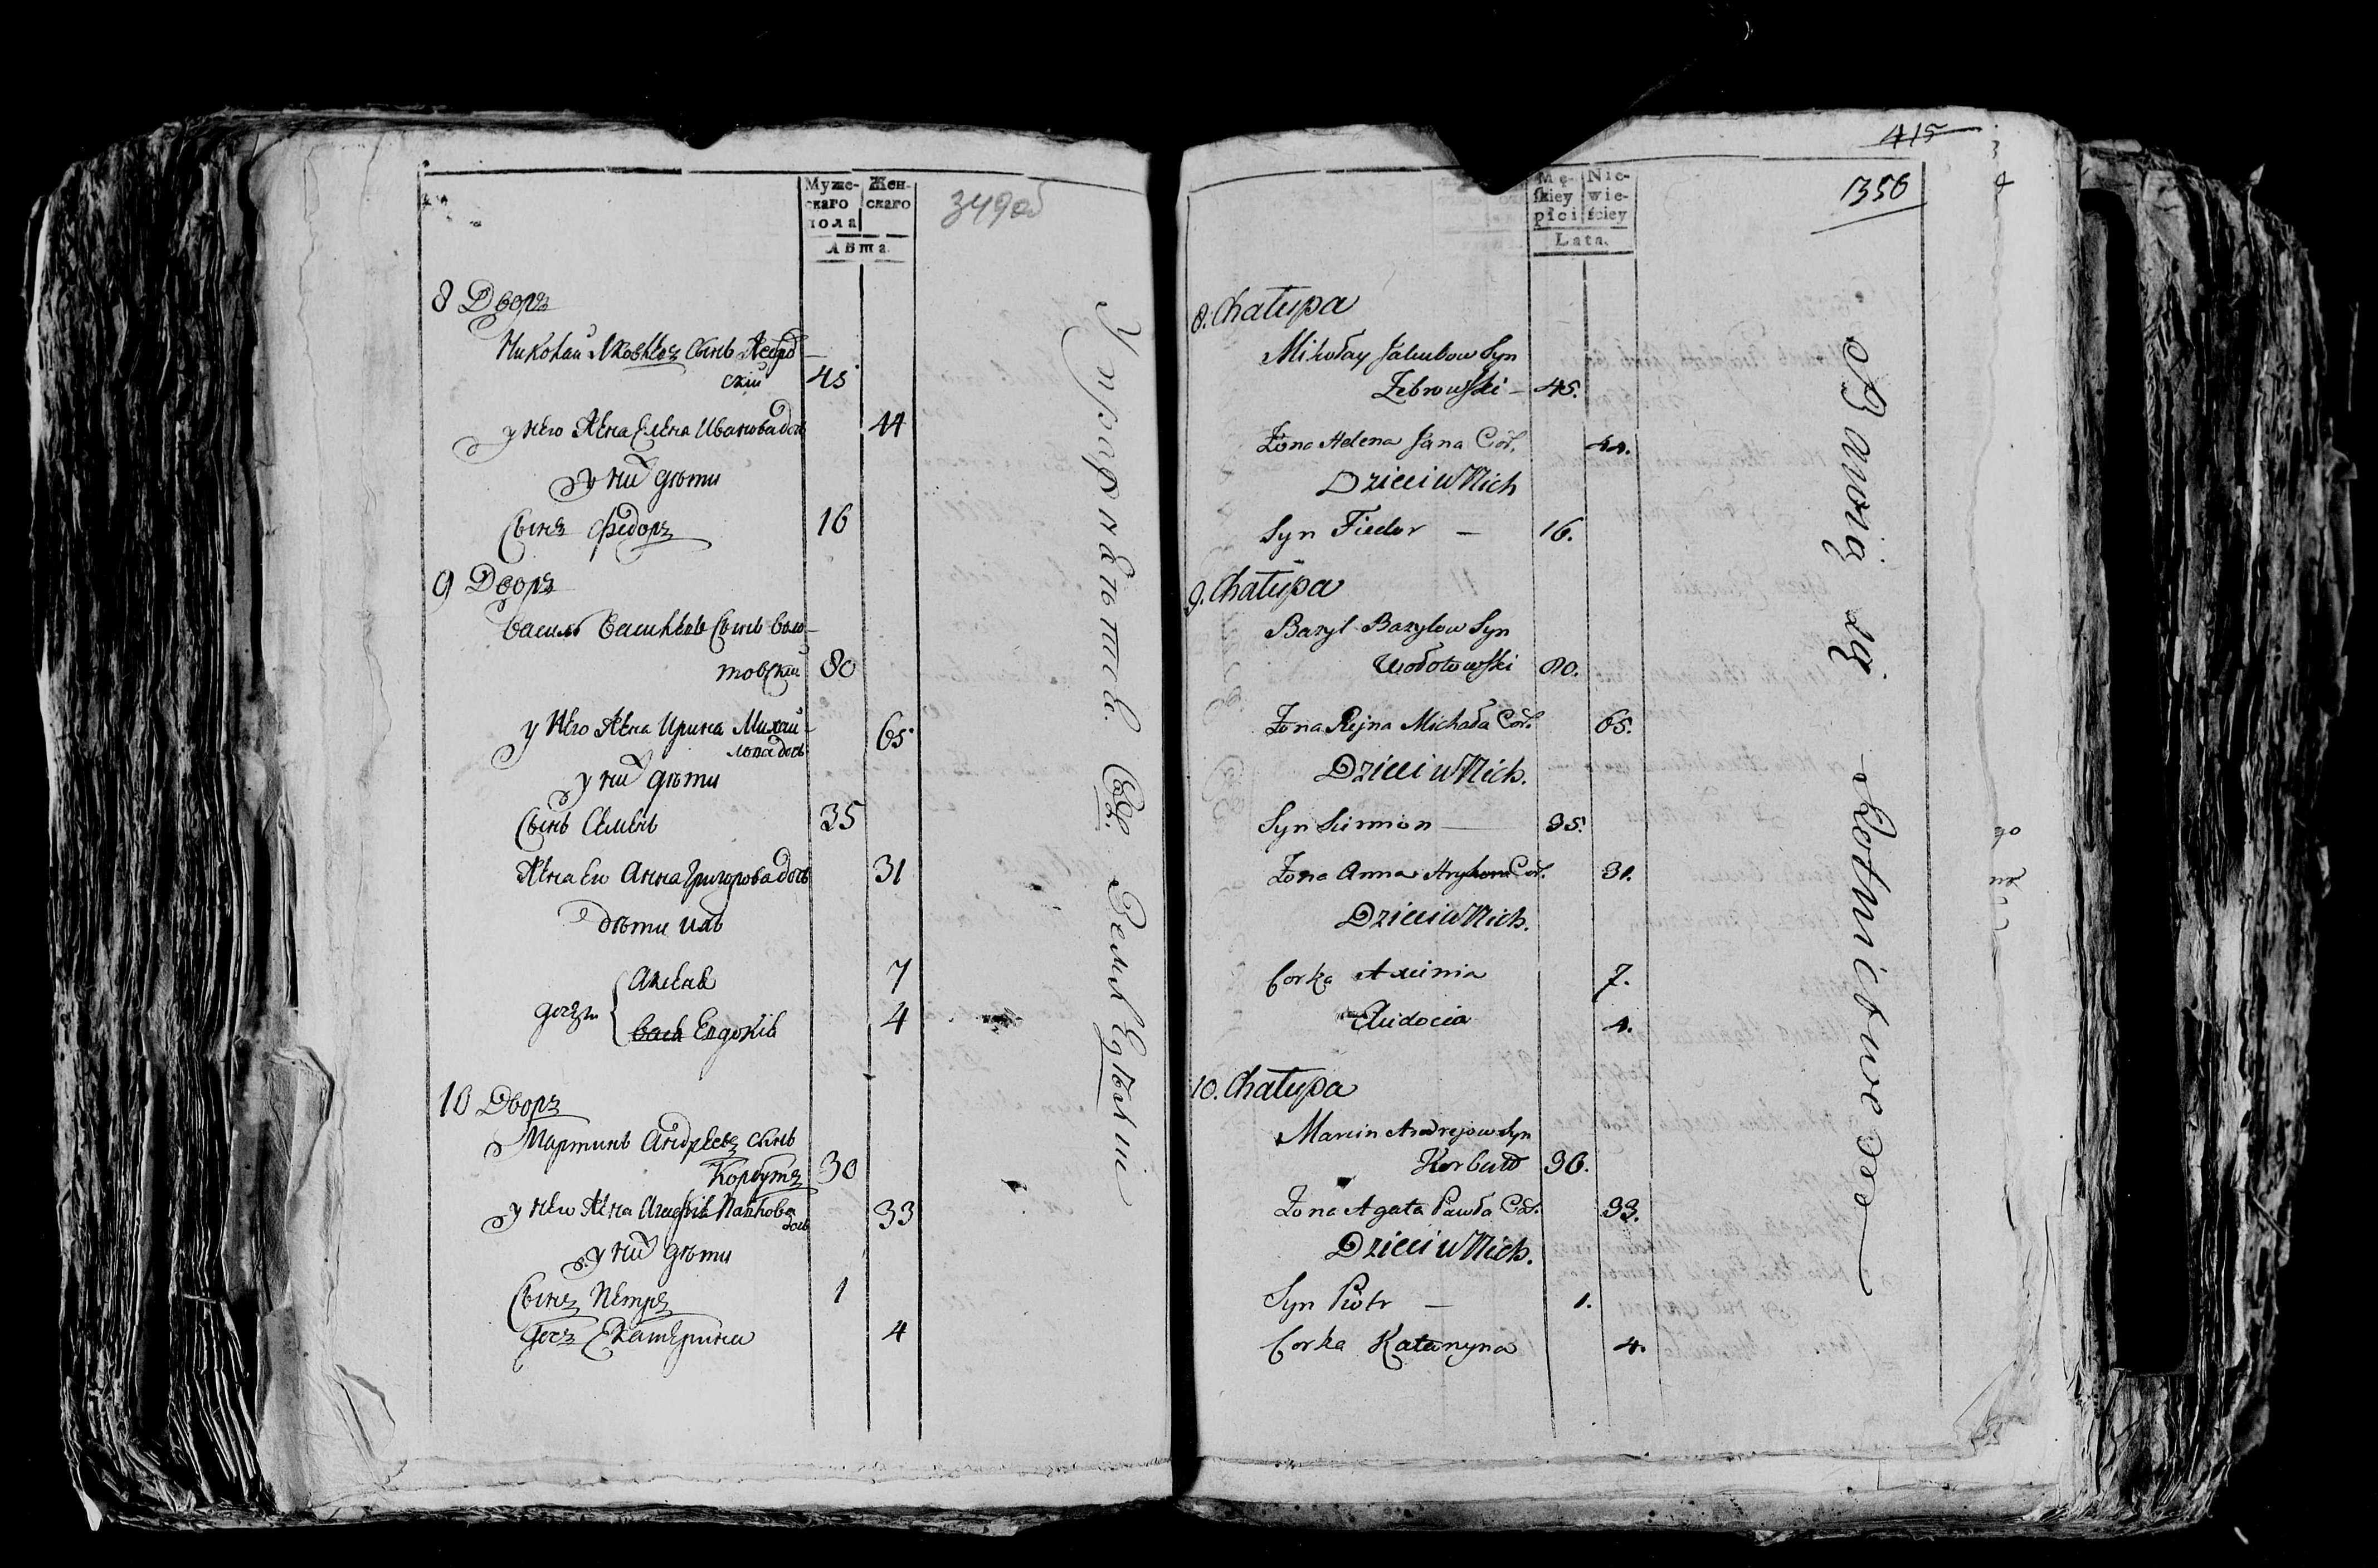 Муже-
скаго
пола
Жен-
скаго
Лѣта.
349об
8 Дворъ
Николай Яковлевъ сынъ Жебров
скій 45
у него жена Елена Иванова дочь 44
у них дѣти
Сынъ Федоръ 16
9 Дворъ
Василь Васильевъ сынъ Воло-
товскій 80
у него жена Ирина Михай-
лова дочь 65
у них дѣти
Сынъ Семенъ 35
Жена его Анна Григорова дочь 31
дѣти ихъ
дочь Аксенія 7
Евдокія 4
10 Дворъ
Мартинъ Андреевъ сынъ
Корбутъ 30
у него жена Агафія Павлова
дочь 33
у них дѣти
Сынъ Петръ 1
дочь Екатерина 4
415
Mę-
skiey
płci
Nie-
wie-
ściey
Lata.
1350
8. Chałupa
Mikołay Jakubow Syn
Żebrowski - 45.
Żona Helena Jana Cor. 44.
Dzieci u Nich
Syn Fiedor - 16.
9. Chałupa
Bazyl Bazylow Syn
Wołotowski 80.
Żona Rejna Michała Cor. 65.
Dzieci u Nich.
Syn Siemion 35.
Żona Anna Hryhora Cor. 31.
Dzieci u Nich.
Corka Axinia 7.
Audocia 4.
10. Chałupa
Marcin Andrejow Syn
Korbutt 30.
Żona Agata Pawła Cor. 33.
Dzieci u Nich.
Syn Piotr - 1.
Corka Kataryna 4.